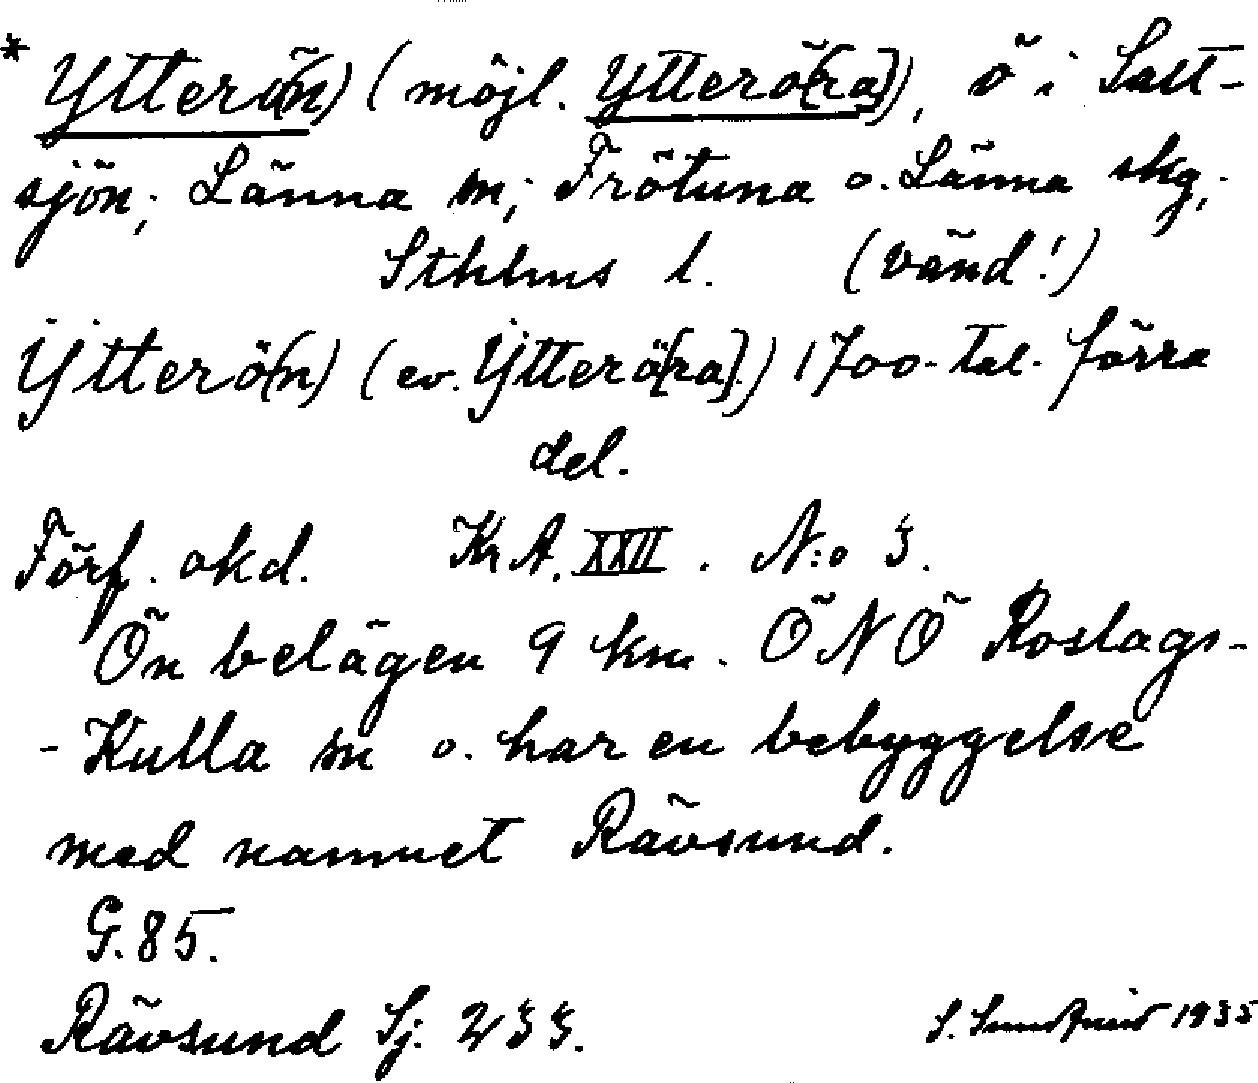 * Ytterö(n) (möjl. Ytterö[ra]), ö i Salt-
sjön; Länna sn; Frötuna o. Länna skg,
Sthlms l. (vänd!)
Ytterö(n) (ev. Ytterö[ra].) 1700-tal. förra
del.
Förf. okd. KrA. XXII. N:o 3.
Ön belägen 9 km. ÖNÖ Roslags-
- Kulla sn o. har en bebyggelse
med namnet Rävsund.
G. 85.
Rävsund Sj. 233.
S. 1935